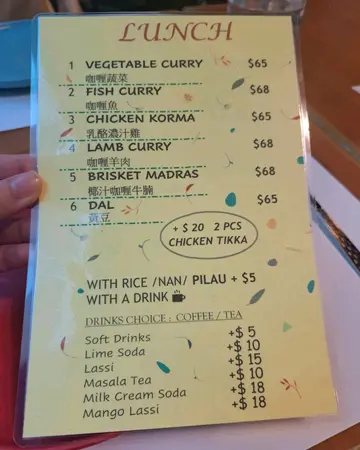 LUNCH
1 VEGETABLE CURRY $65
咖喱蔬菜
2 FISH CURRY $68
咖喱魚
3 CHICKEN KORMA $65
乳酪濃汁雞
4 LAMB CURRY $68
咖喱羊肉
5 BRISKET MADRAS $68
椰汁咖喱牛腩
6 DAL $65
黃豆
+ $ 20 2 PCS
CHICKEN TIKKA
WITH RICE /NAN/ PILAU + $5
WITH A DRINK
DRINKS CHOICE : COFFEE / TEA
Soft Drinks +$ 5
Lime Soda +$ 10
Lassi +$ 15
Masala Tea +$ 10
Milk Cream Soda +$ 18
Mango Lassi +$ 18